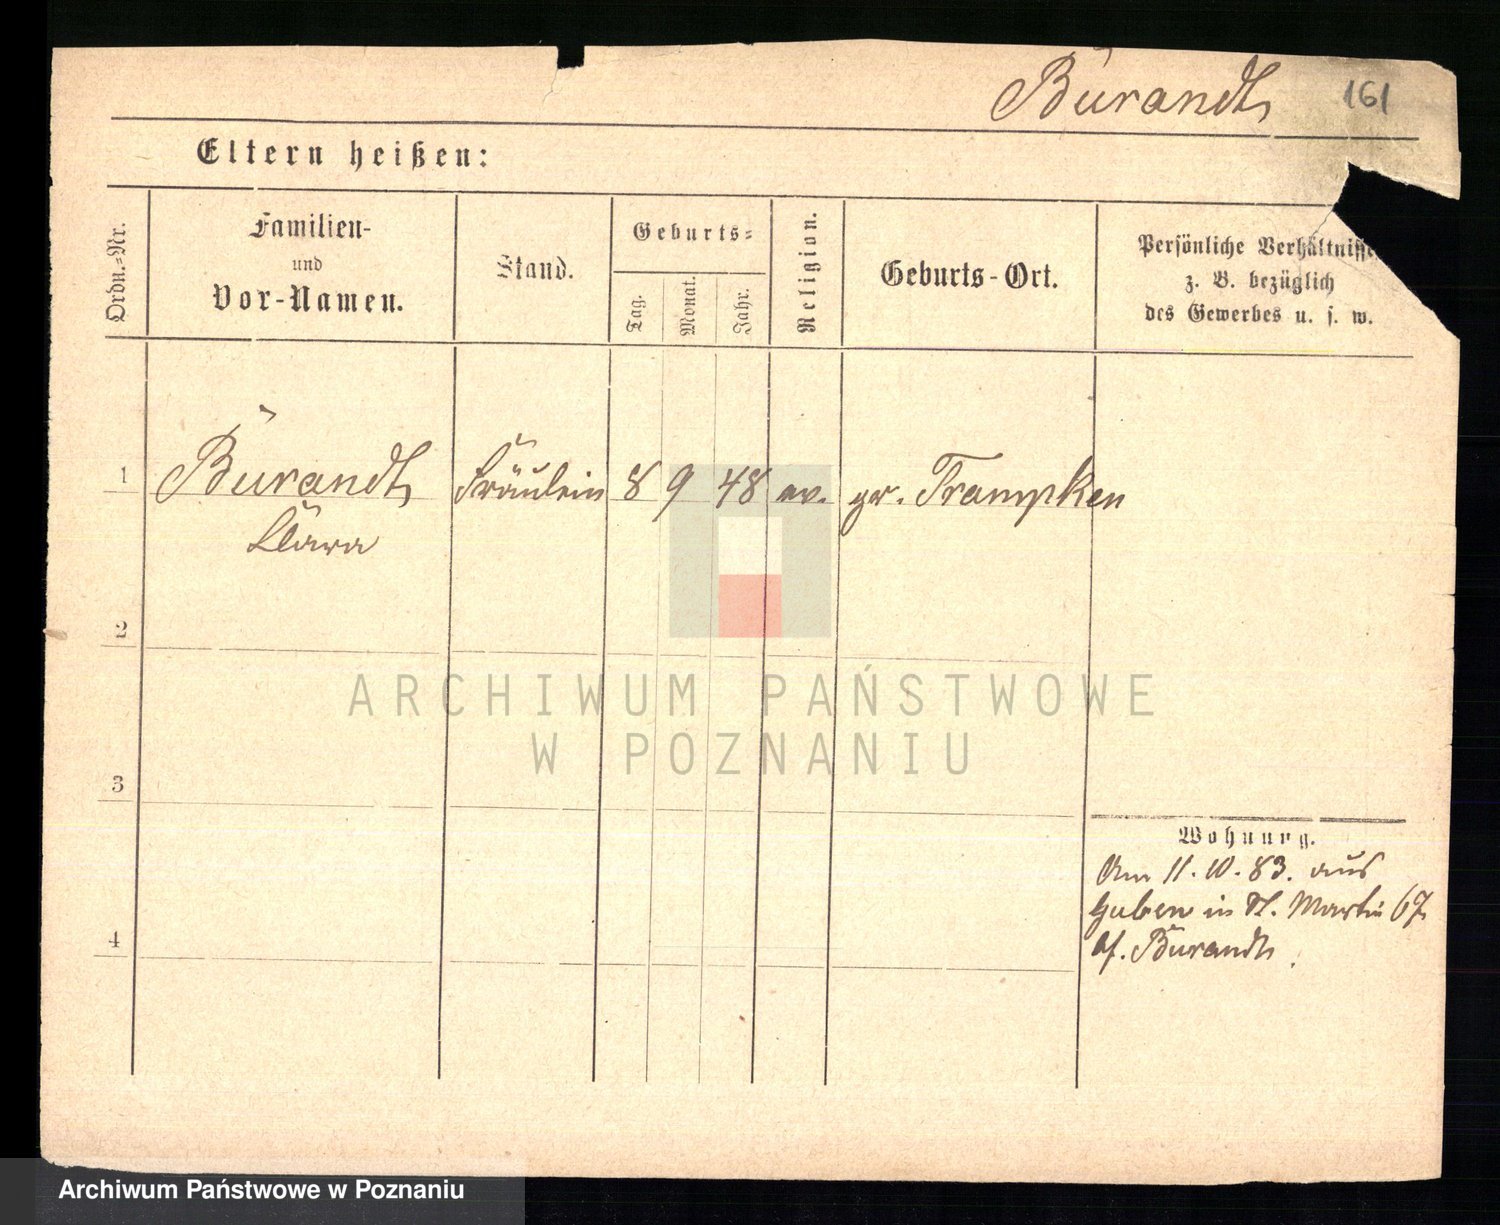 Burandt, 161
Eltern heißen:
Ordn.-Nr.
Familien-
und
Vor-Namen.
Stand.
Geburts-
Tag.
Monat.
Jahr.
Religion.
Geburts-Ort.
Persönliche Verhältnisse
z. B. bezüglich
des Gewerbes u. s. w.
1 Burandt, Fräulein 8 9 48 ev. gr. Trampken
Clara
2
3
4
Wohnung.
Am 11.10.83. aus
Guben in St. Martin 67
bf. Burandt.
ARCHIWUM PAŃSTWOWE
W POZNANIU
Archiwum Państwowe w Poznaniu